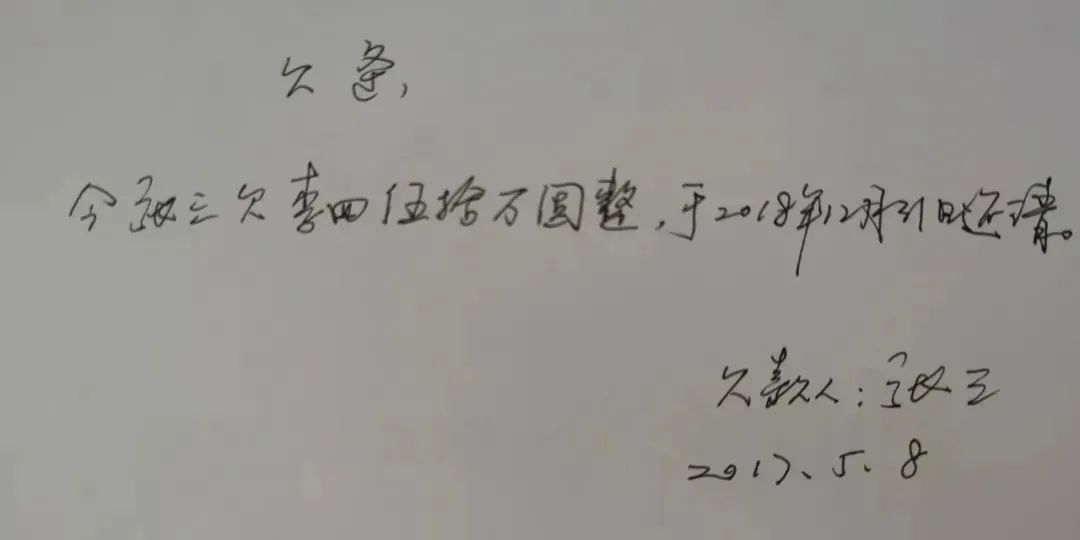 欠条,
今张三欠李四伍拾万圆整,于2018年12月31日还清。
欠款人:张三
2017、5、8